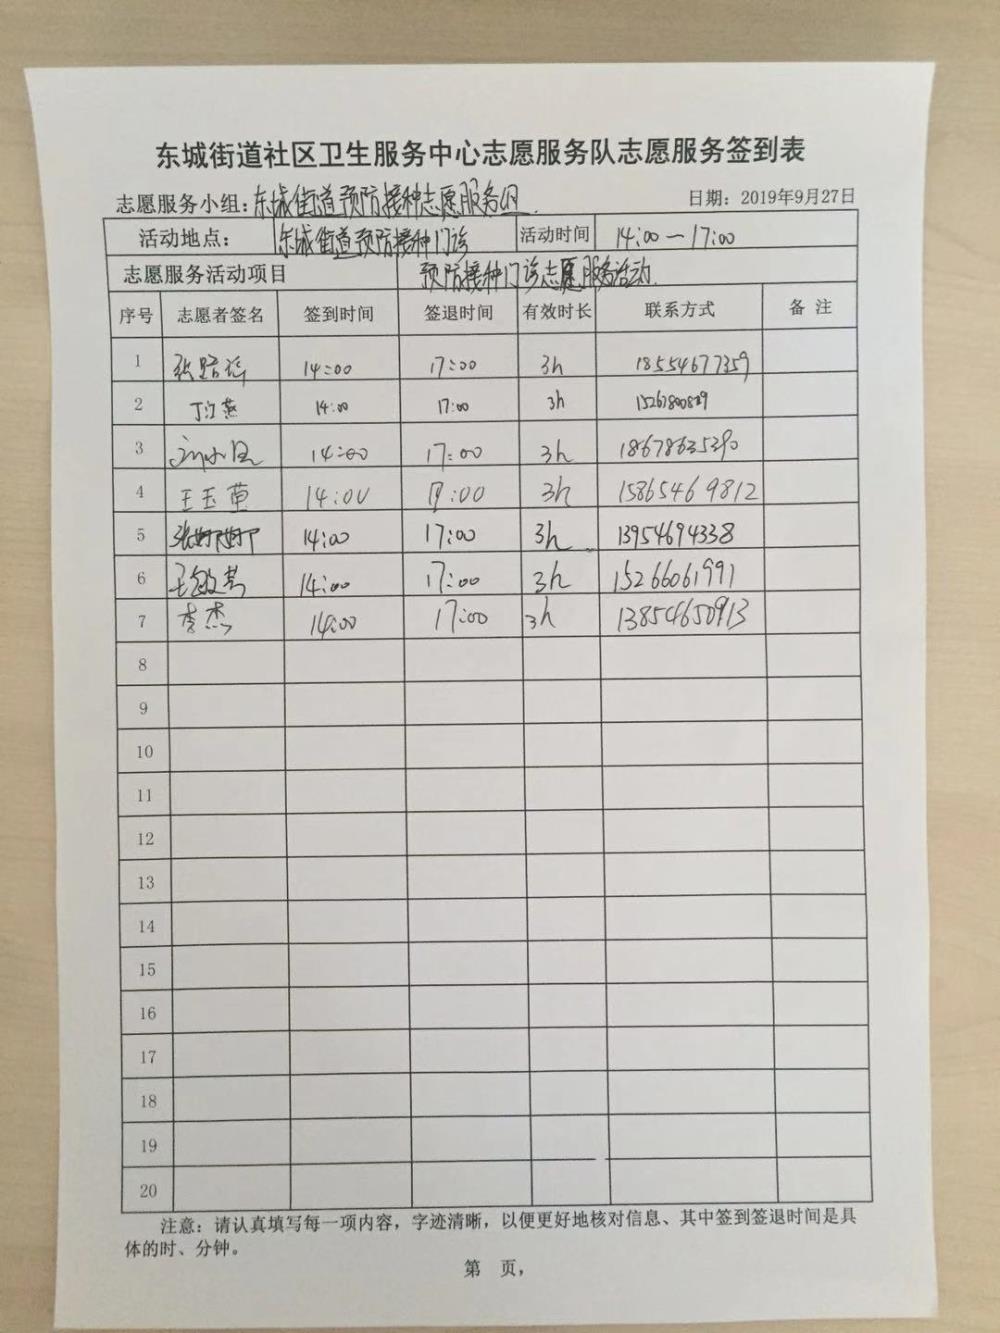 东城街道社区卫生服务中心志愿服务队志愿服务签到表
志愿服务小组：东城街道预防接种志愿服务组. 日期：2019年9月27日
活动地点： 东城街道预防接种门诊 活动时间 14:00—17:00
志愿服务活动项目 预防接种门诊志愿服务活动.
序号 志愿者签名 签到时间 签退时间 有效时长 联系方式 备 注
1 张路遥 14:00 17:00 3h 18554677359
2 丁江燕 14:00 17:00 3h
3 刘小凤 14:00 17:00 3h 18678635390
4 王玉萍 14:00 17:00 3h 15865469812
5 张娜娜 14:00 17:00 3h 13954694338
6 王敏 14:00 17:00 3h 15266061991
7 李杰 14:00 17:00 3h 13854650913
8
9
10
11
12
13
14
15
16
17
18
19
20
注意：请认真填写每一项内容，字迹清晰，以便更好地核对信息、其中签到签退时间是具
体的时、分钟。
第 页，